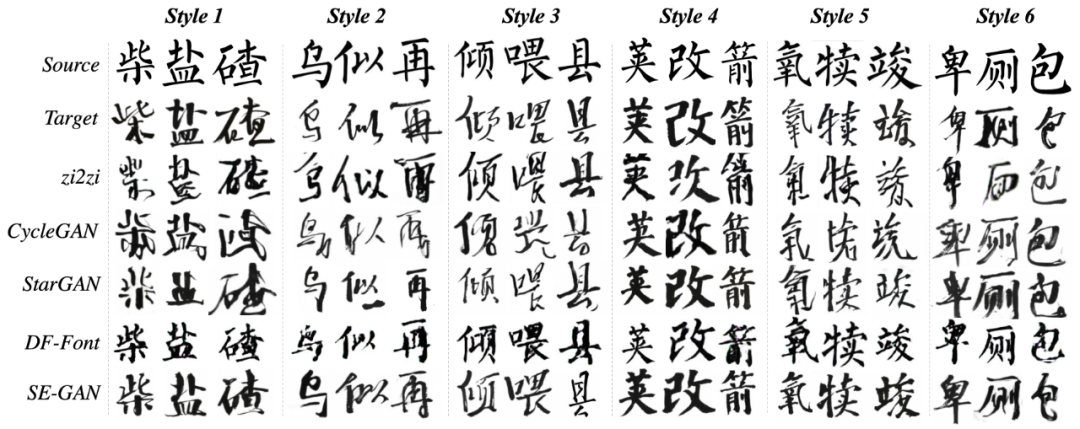 Style 1 Style 2 Style 3 Style 4 Style 5 Style 6
Source 柴盐碴 乌似再 倾喂县 英改箭 氧犊竣 卑厕包
Target 柴盐碴 乌似再 倾喂县 英改箭 氧犊竣 卑厕包
zi2zi 盐 乌似再 倾喂县 英改箭 氧犊竣 卑 包
CycleGAN 盐 乌似再 倾 县 英改箭 氧 卑厕包
StarGAN 柴盐碴 乌似再 倾喂县 英改箭 氧犊竣 卑厕包
DF-Font 柴盐碴 乌似再 倾喂县 英改箭 氧犊竣 卑厕包
SE-GAN 柴盐碴 乌似再 倾喂县 英改箭 氧犊竣 卑厕包